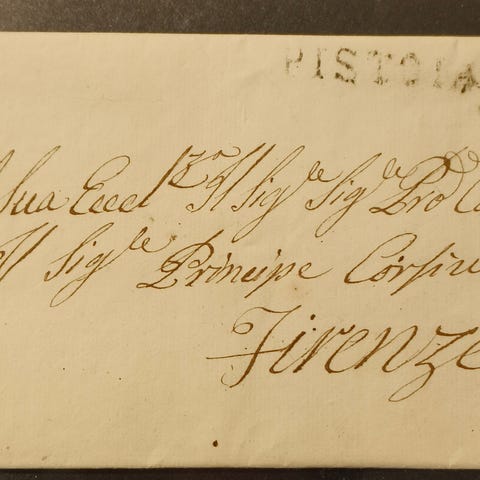 PISTOIA
Sua Eccl za Il Sig le Sig le Pro
Il Sig le Principe Corsin
Firenze